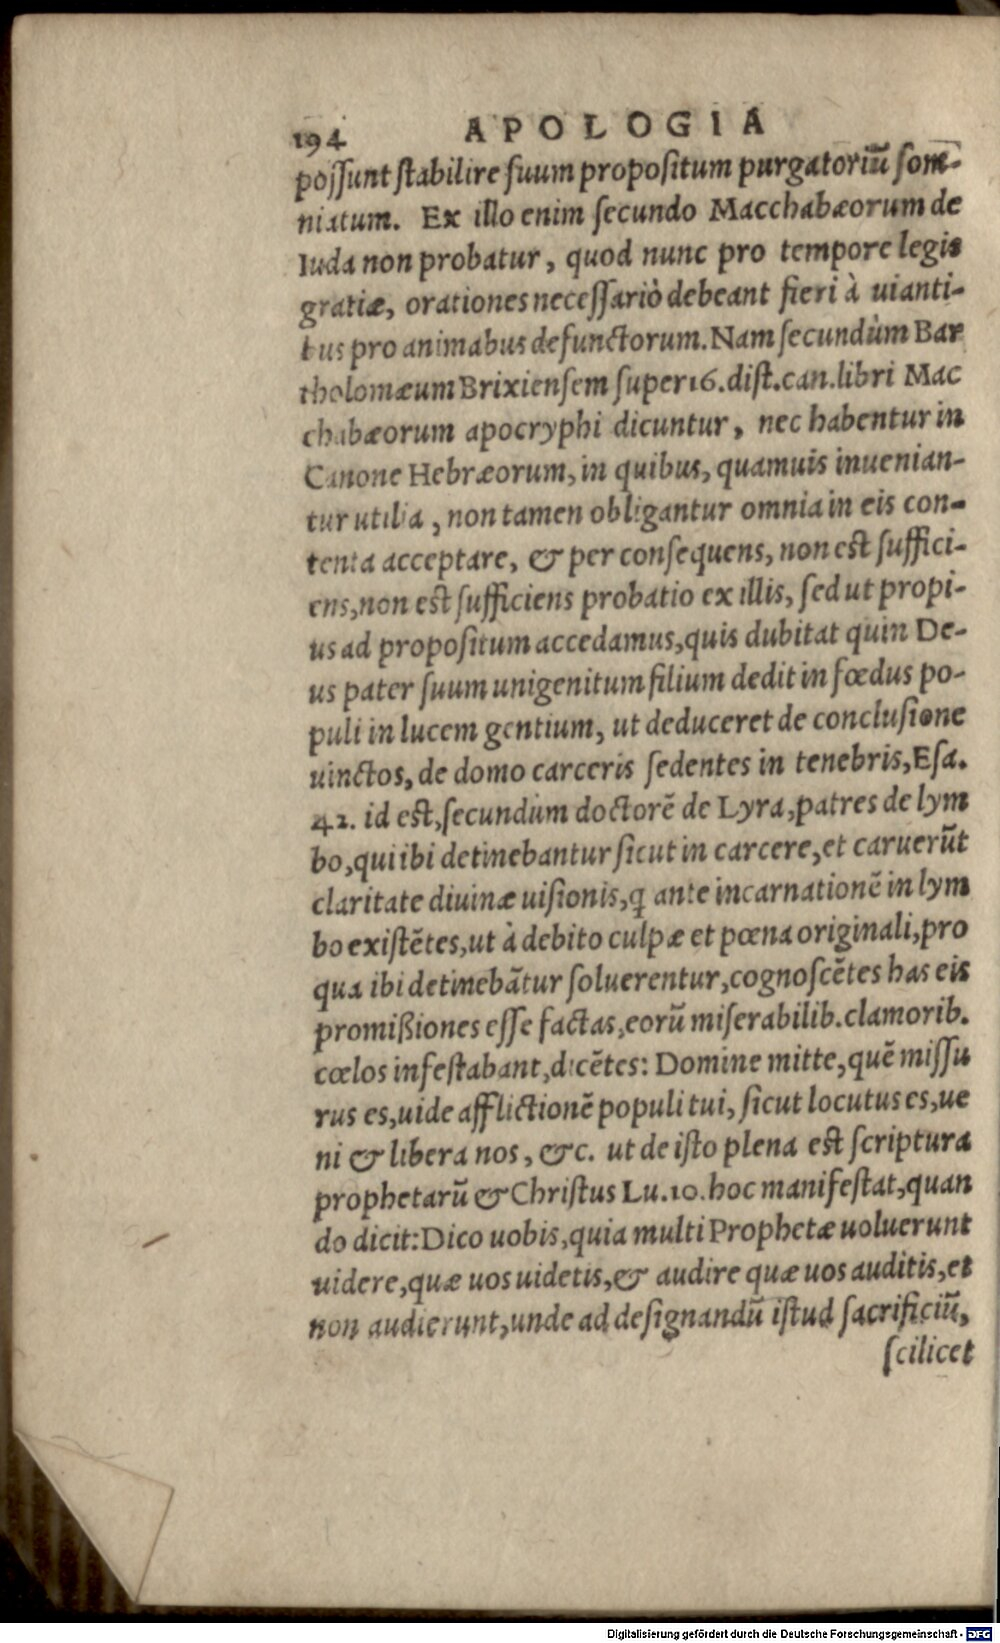 194 APOLOGIA
possunt stabilire suum propositum purgatoriū som-
niatum. Ex illo enim secundo Macchabæorum de
Iuda non probatur, quod nunc pro tempore legis
gratiæ, orationes necessariò debeant fieri à uianti-
bus pro animabus defunctorum. Nam secundùm Bar
tholomæum Brixiensem super 16. dist. can. libri Mac
chabæorum apocryphi dicuntur, nec habentur in
Canone Hebræorum, in quibus, quamuis inuenian-
tur utilia, non tamen obligantur omnia in eis con-
tenta acceptare, & per consequens, non est suffici-
ens, non est sufficiens probatio ex illis, sed ut propi-
us ad propositum accedamus, quis dubitat quin De-
us pater suum unigenitum filium dedit in fœdus po-
puli in lucem gentium, ut deduceret de conclusione
uinctos, de domo carceris sedentes in tenebris, Esa.
42. id est, secundùm doctorē de Lyra, patres de lym
bo, qui ibi detinebantur sicut in carcere, et caruerūt
claritate diuinæ uisionis, q ante incarnationē in lym
bo existētes, ut à debito culpæ et pœna originali, pro
qua ibi detinebātur soluerentur, cognoscētes has eis
promißiones esse factas, eorū miserabilib. clamorib.
cœlos infestabant, dicētes: Domine mitte, quē missu
rus es, uide afflictionē populi tui, sicut locutus es, ue
ni & libera nos, &c. ut de isto plena est scriptura
prophetarū & Christus Lu. 10. hoc manifestat, quan
do dicit: Dico uobis, quia multi Prophetæ uoluerunt
uidere, quæ uos uidetis, & audire quæ uos auditis, et
non audierunt, unde ad designandū istud sacrificiū,
scilicet
Digitalisierung gefördert durch die Deutsche Forschungsgemeinschaft - DFG